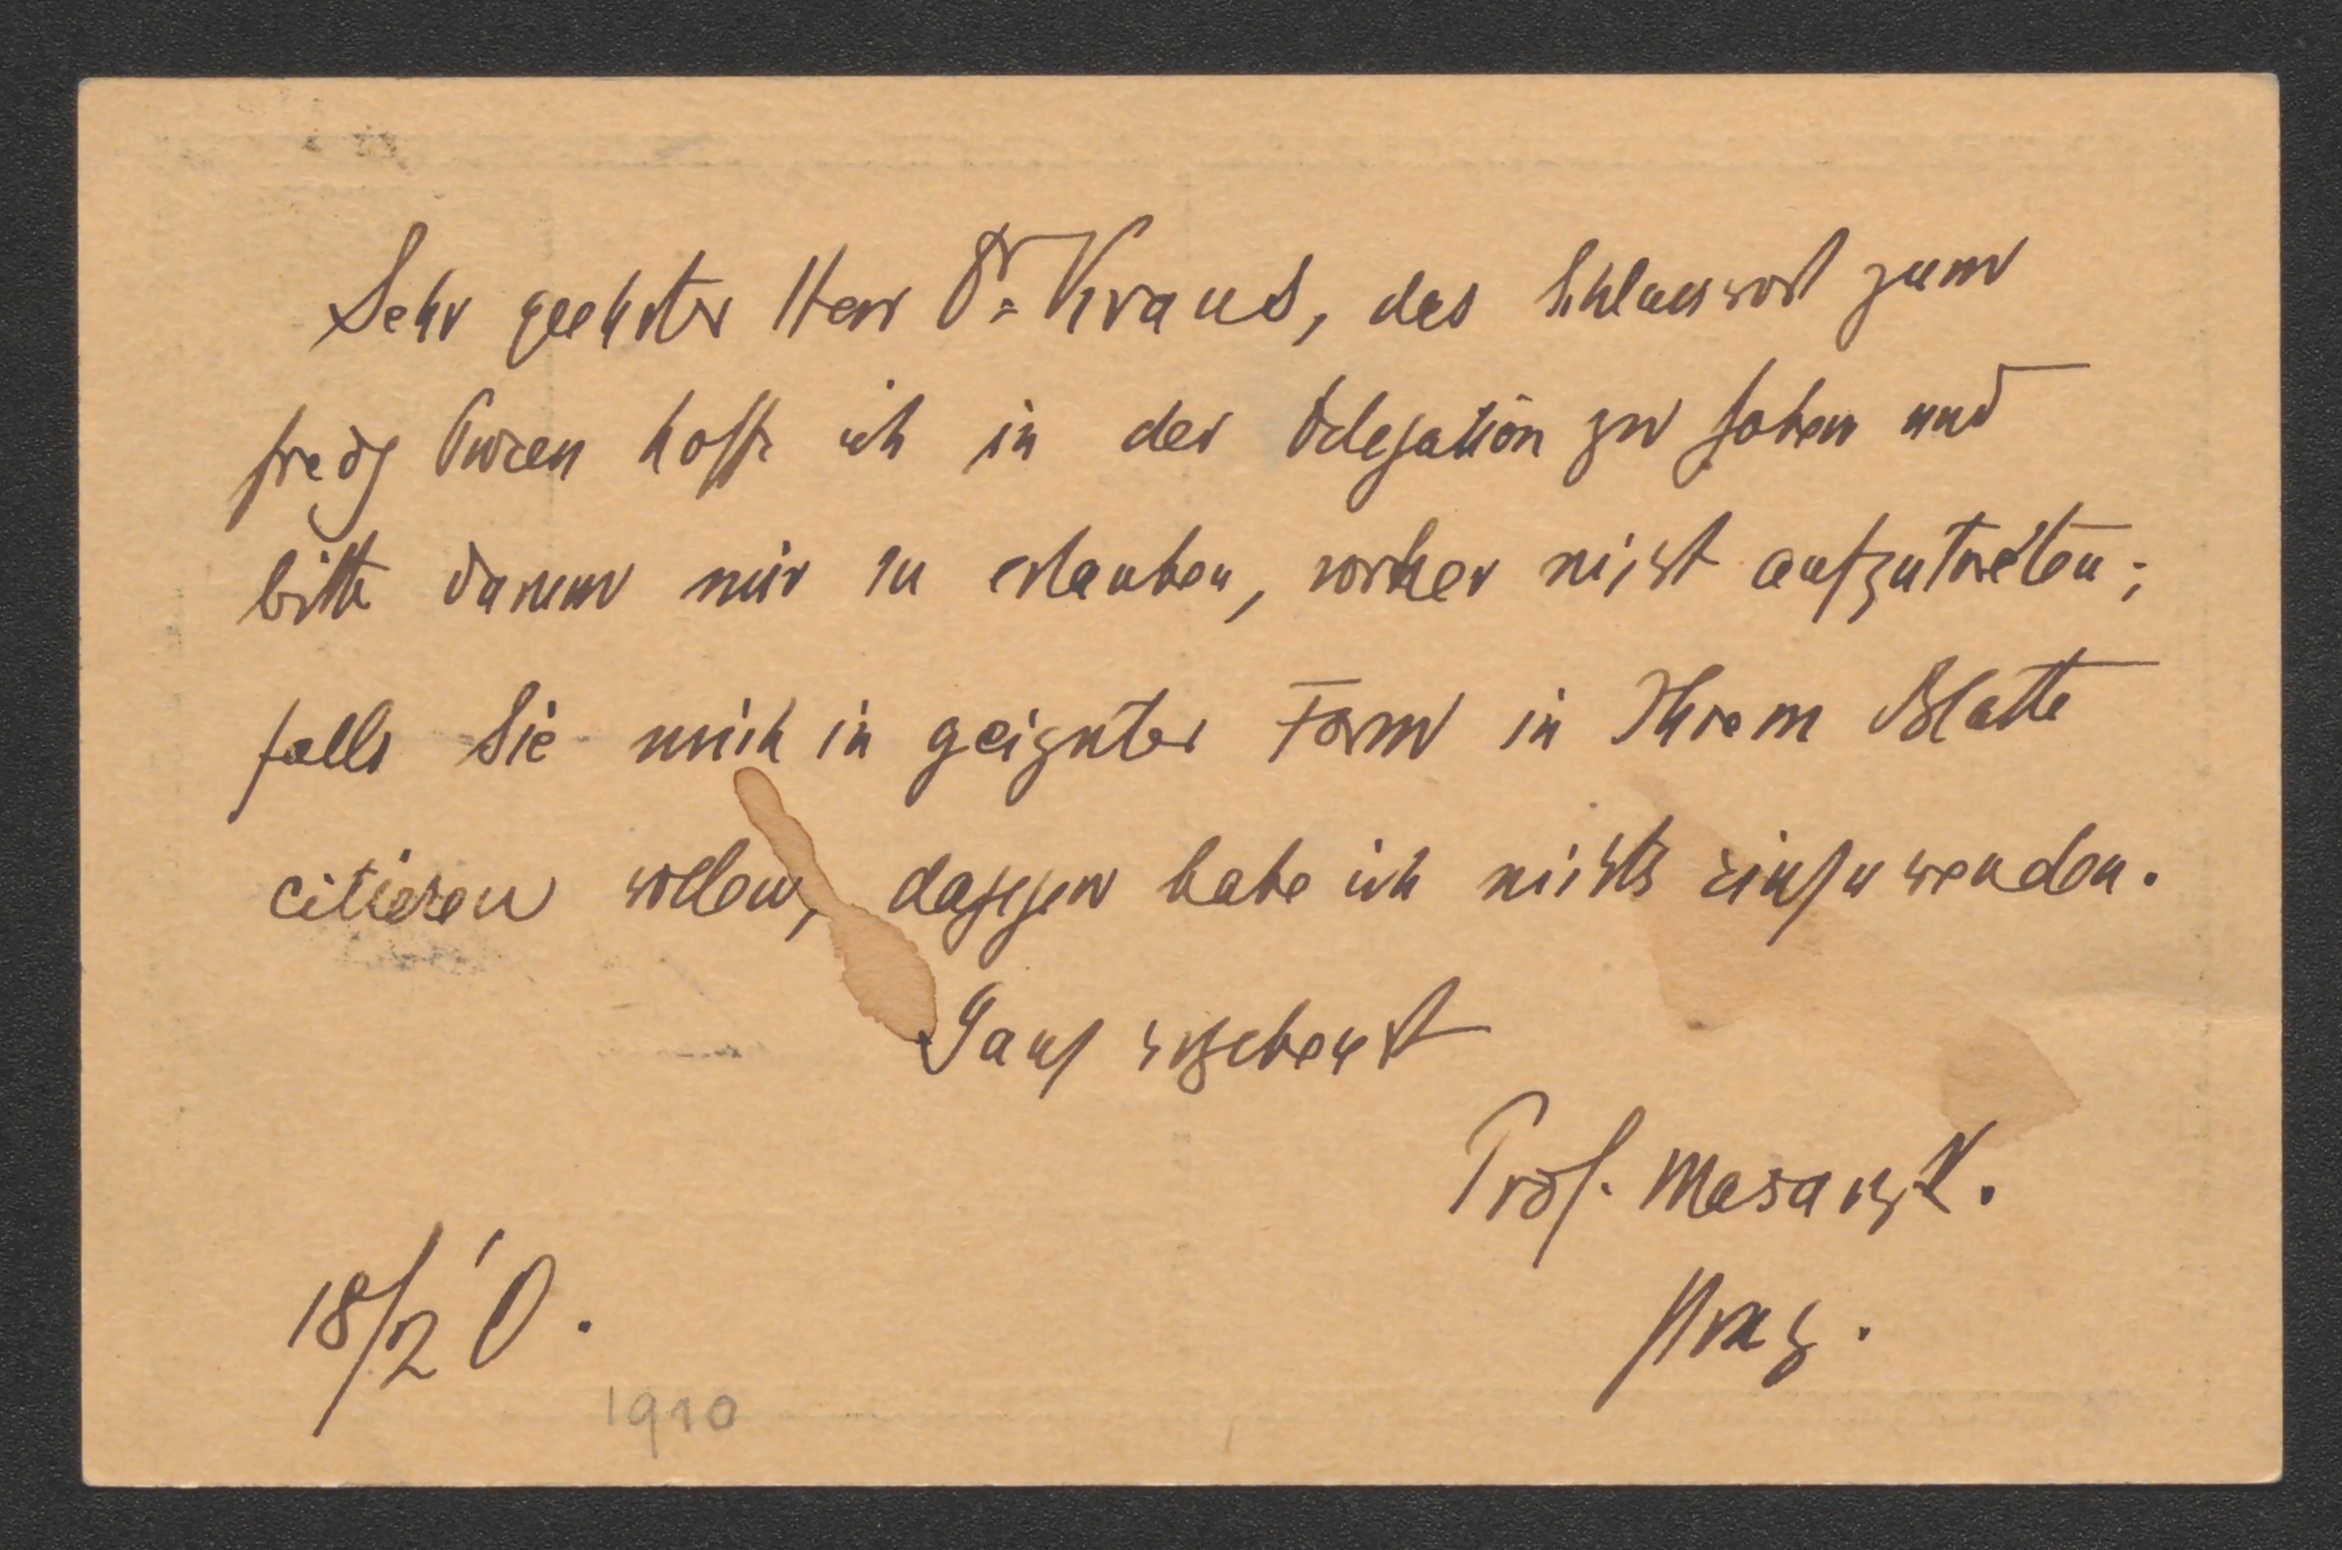 Sehr geehrter Herr Dr. Kraus, das Schlusswort zum
Friedj Process hoffe ich in der Delegation zu haben und
bitte darum mir zu erlauben, vorher nicht aufzutreten;
falls Sie mich in geigneter Form in Ihrem Blatte
citieren wollen, dagegen habe ich nichts einzuwenden.
Ganz ergebenst
Prof. Masaryk.
18/2 '0.
Prag.
1910